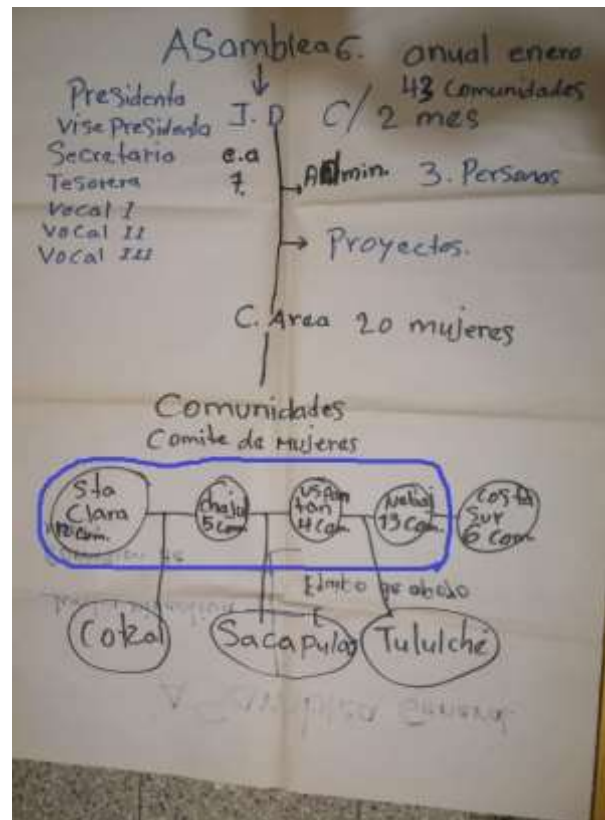 ASamblea G. anual enero
43 Comunidades
Presidenta
Vise Presidenta
Secretario
Tesorera
Vocal I
Vocal II
Vocal III
J. D C/ 2 mes
e.a
7.
Admin. 3. Personas
Proyectos.
C. Area 20 mujeres
Comunidades
Comite de Mujeres
Sta Clara 12 com.
chajul 5 com
uspan tan 4 Com.
nebaj 13 Com.
costa Sur 6 Com
Cotzal
Sacapulas
Tululché